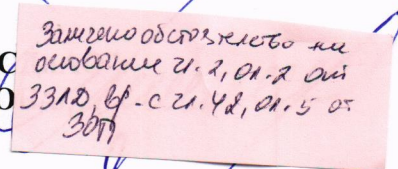 Заличено обстоятелство на
основание чл. 2, ал. 2 от
ЗЗЛД, вр. с чл. 42, ал. 5 от
ЗОП